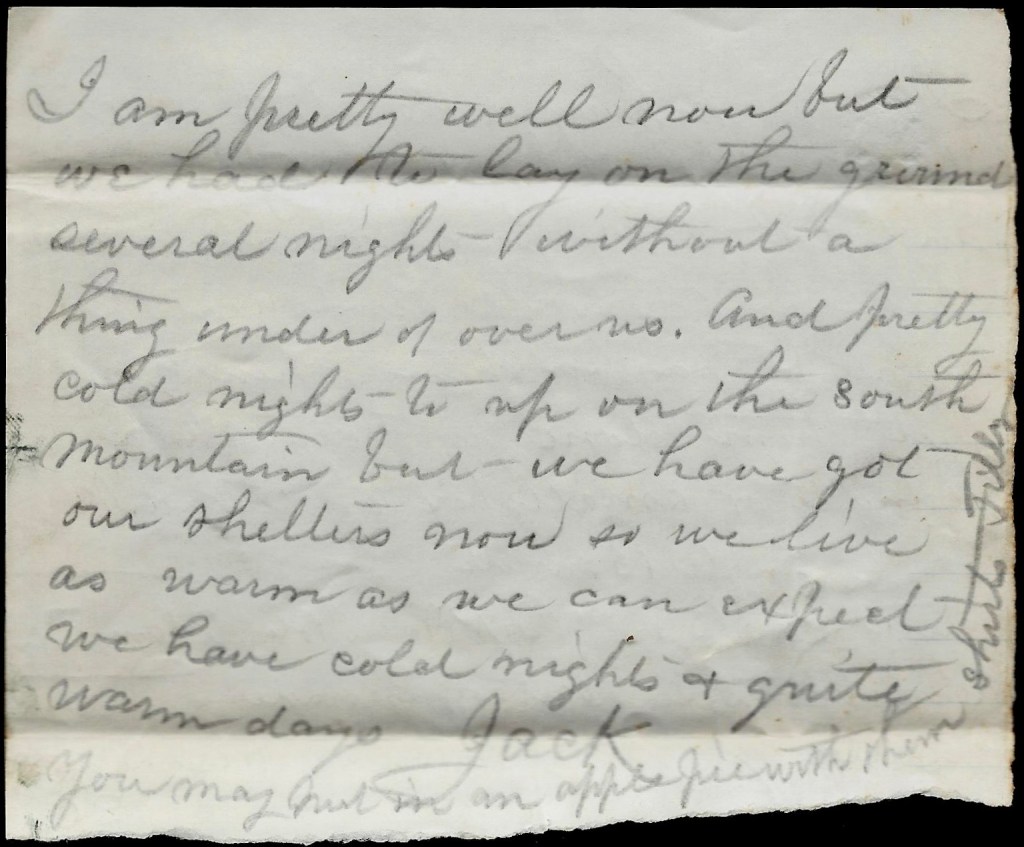 I am pretty well now but
we had to lay on the ground
several nights without a
thing under or over us. And pretty
cold nights to up on the South
Mountain but we have got
our shelters now so we live
as warm as we can expect
we have cold nights & quite
warm days Jack
You may put in an apple pie with them
shirts